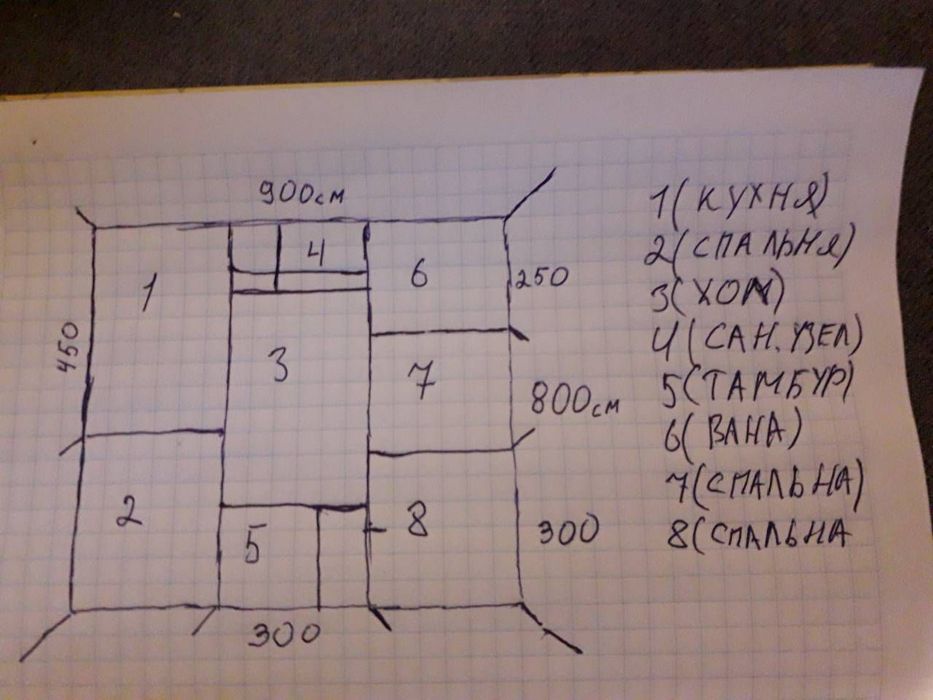 900см
450
1
4
6
250
3
7
800см
2
5
8
300
300
1(КУХНЯ)
2(СПАЛЬНЯ)
3(ХОЛ)
4(САН.УЗЕЛ)
5(ТАМБУР)
6(ВАНА)
7(СПАЛЬНА)
8(СПАЛЬНА